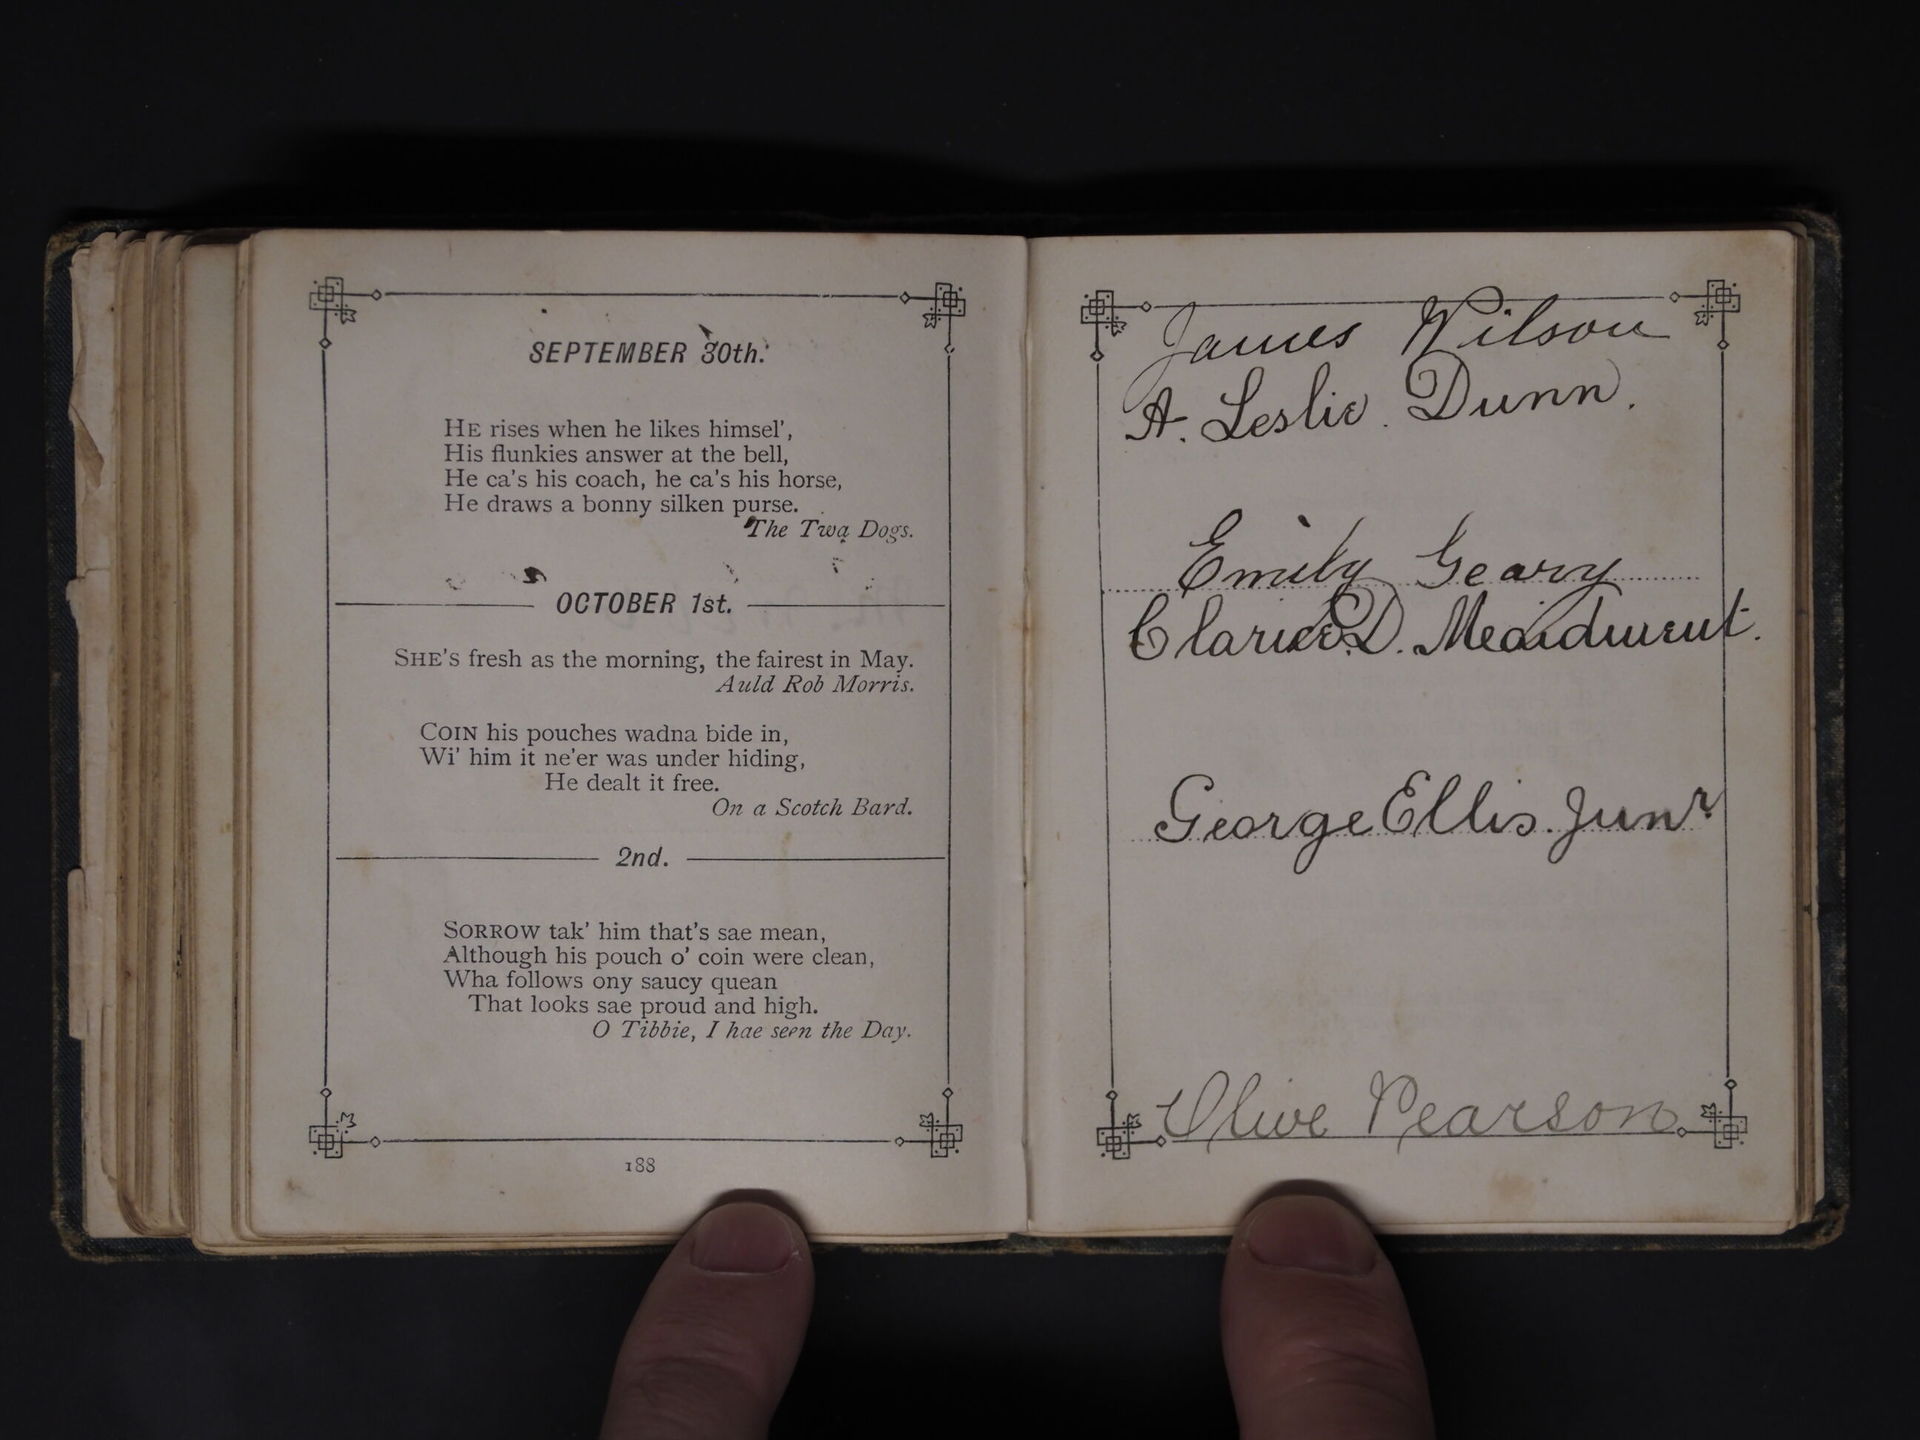 SEPTEMBER 30th.
HE rises when he likes himsel',
His flunkies answer at the bell,
He ca's his coach, he ca's his horse,
He draws a bonny silken purse.
The Twa Dogs.
OCTOBER 1st.
SHE'S fresh as the morning, the fairest in May.
Auld Rob Morris.
COIN his pouches wadna bide in,
Wi' him it ne'er was under hiding,
He dealt it free.
On a Scotch Bard.
2nd.
SORROW tak' him that's sae mean,
Although his pouch o' coin were clean,
Wha follows ony saucy quean
That looks sae proud and high.
O Tibbie, I hae seen the Day.
188
James Wilson
A. Leslie. Dunn.
Emily Geary
Clarice. D. Meaidment.
George Ellis. Junr
Olive Pearson